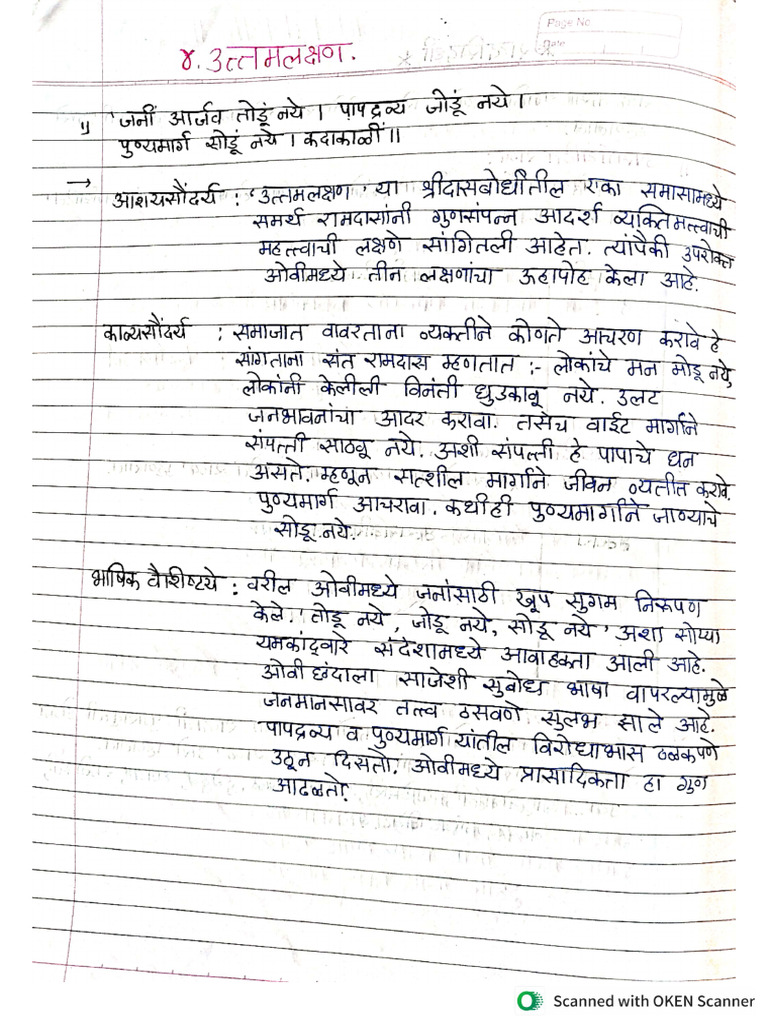 Page No.
Date
४. उत्तमलक्षण.
१) 'जनीं आर्जव तोडूं नये । पापद्रव्य जोडूं नये ।
पुण्यमार्ग सोडूं नये । कदाकाळीं ॥
→ आशयसौंदर्य : 'उत्तमलक्षण' या श्रीदासबोधातील एका समासामध्ये
समर्थ रामदासांनी गुणसंपन्न आदर्श व्यक्तिमत्त्वाची
महत्त्वाची लक्षणे सांगितली आहेत. त्यांपैकी उपरोक्त
ओवीमध्ये तीन लक्षणांचा ऊहापोह केला आहे.
काव्यसौंदर्य : समाजात वावरताना व्यक्तीने कोणते आचरण करावे हे
सांगताना संत रामदास म्हणतात :- लोकांचे मन मोडू नये,
लोकांनी केलीली विनंती धुडकावू नये. उलट
जनभावनांचा आदर करावा. तसेच वाईट मार्गाने
संपत्ती साठवू नये. अशी संपत्ती हे पापाचे धन
असते. म्हणून सत्शील मार्गाने जीवन व्यतीत करावे.
पुण्यमार्ग आचरावा. कधीही पुण्यमार्गाने जाण्याचे
सोडू नये.
भाषिक वैशिष्ट्ये : वरील ओवीमध्ये जनांसाठी खूप सुगम निरूपण
केले. 'तोडू नये, जोडू नये, सोडू नये' अशा सोप्या
यमकांद्वारे संदेशामध्ये आवाहकता आली आहे.
ओवी छंदाला साजेशी सुबोध भाषा वापरल्यामुळे
जनमानसावर तत्त्व ठसवणे सुलभ झाले आहे.
पापद्रव्य व पुण्यमार्ग यांतील विरोधाभास ठळकपणे
उठून दिसतो. ओवीमध्ये प्रासादिकता हा गुण
आढळतो.
Scanned with OKEN Scanner